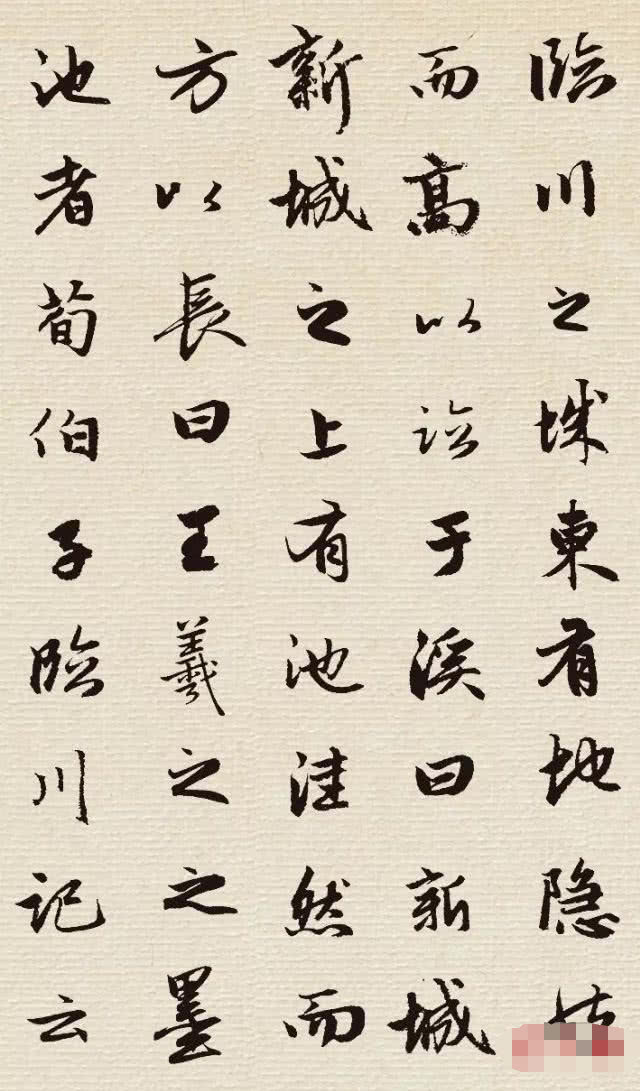 臨川之城東有地隐
而高以臨于溪曰新城
新城之上有池洼然而
方以長曰王羲之之墨
池者荀伯子臨川記云